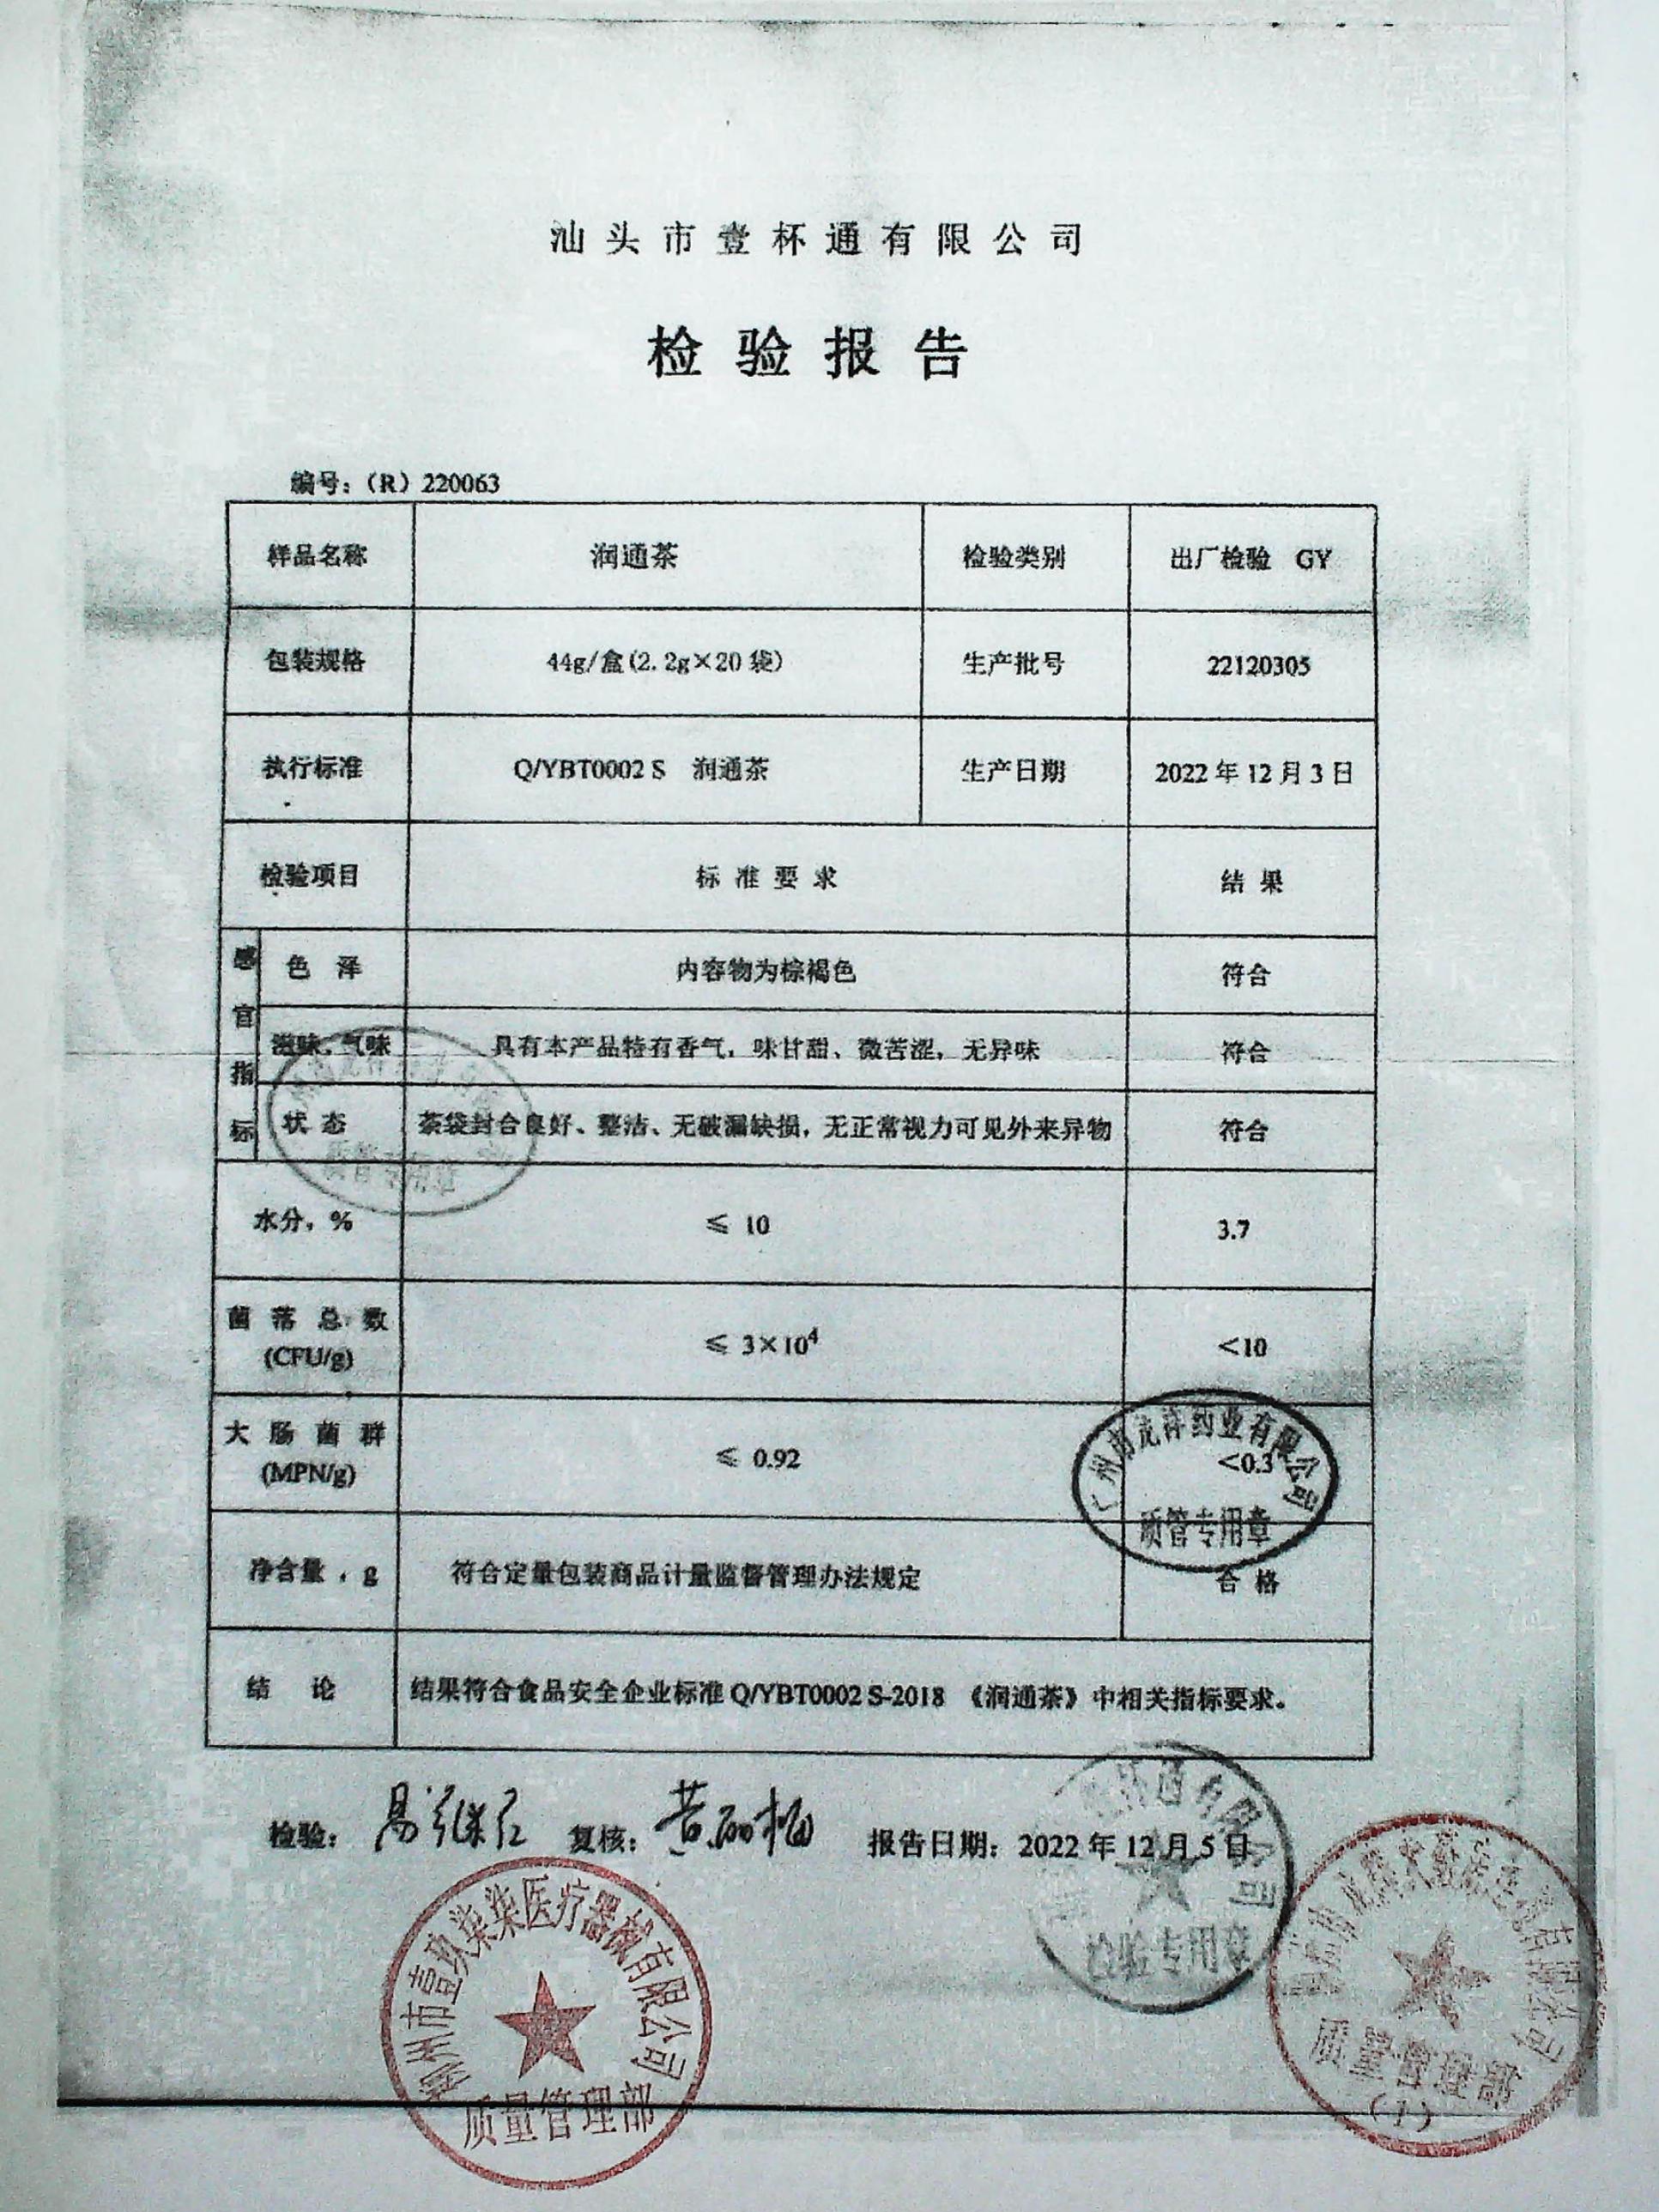 汕头市壹杯通有限公司
检验报告
编号:（R）220063
样品名称 润通茶 检验类别 出厂检验 GY
包装规格 44g/盒(2.2g×20 袋) 生产批号 22120305
执行标准 Q/YBT0002 S 润通茶 生产日期 2022 年 12 月 3 日
检验项目 标准要求 结果
感官指标
色泽 内容物为棕褐色 符合
滋味、气味 具有本产品特有香气，味甘甜、微苦涩，无异味 符合
状态 茶袋封合良好、整洁、无破漏缺损，无正常视力可见外来异物 符合
质管专用章
水分，% ≤ 10 3.7
菌落总数 (CFU/g) ≤ 3×10⁴ <10
大肠菌群 (MPN/g) ≤ 0.92 <0.3
药业有限公司
质管专用章
净含量，g 符合定量包装商品计量监督管理办法规定 合格
结论 结果符合食品安全企业标准 Q/YBT0002 S-2018 《润通茶》中相关指标要求。
检验: 复核: 报告日期: 2022 年 12 月 5 日
杯通有限公司
检验专用章
柳州市壹玖柒柒医疗器械有限公司
质量管理部
质量管理部
(1)